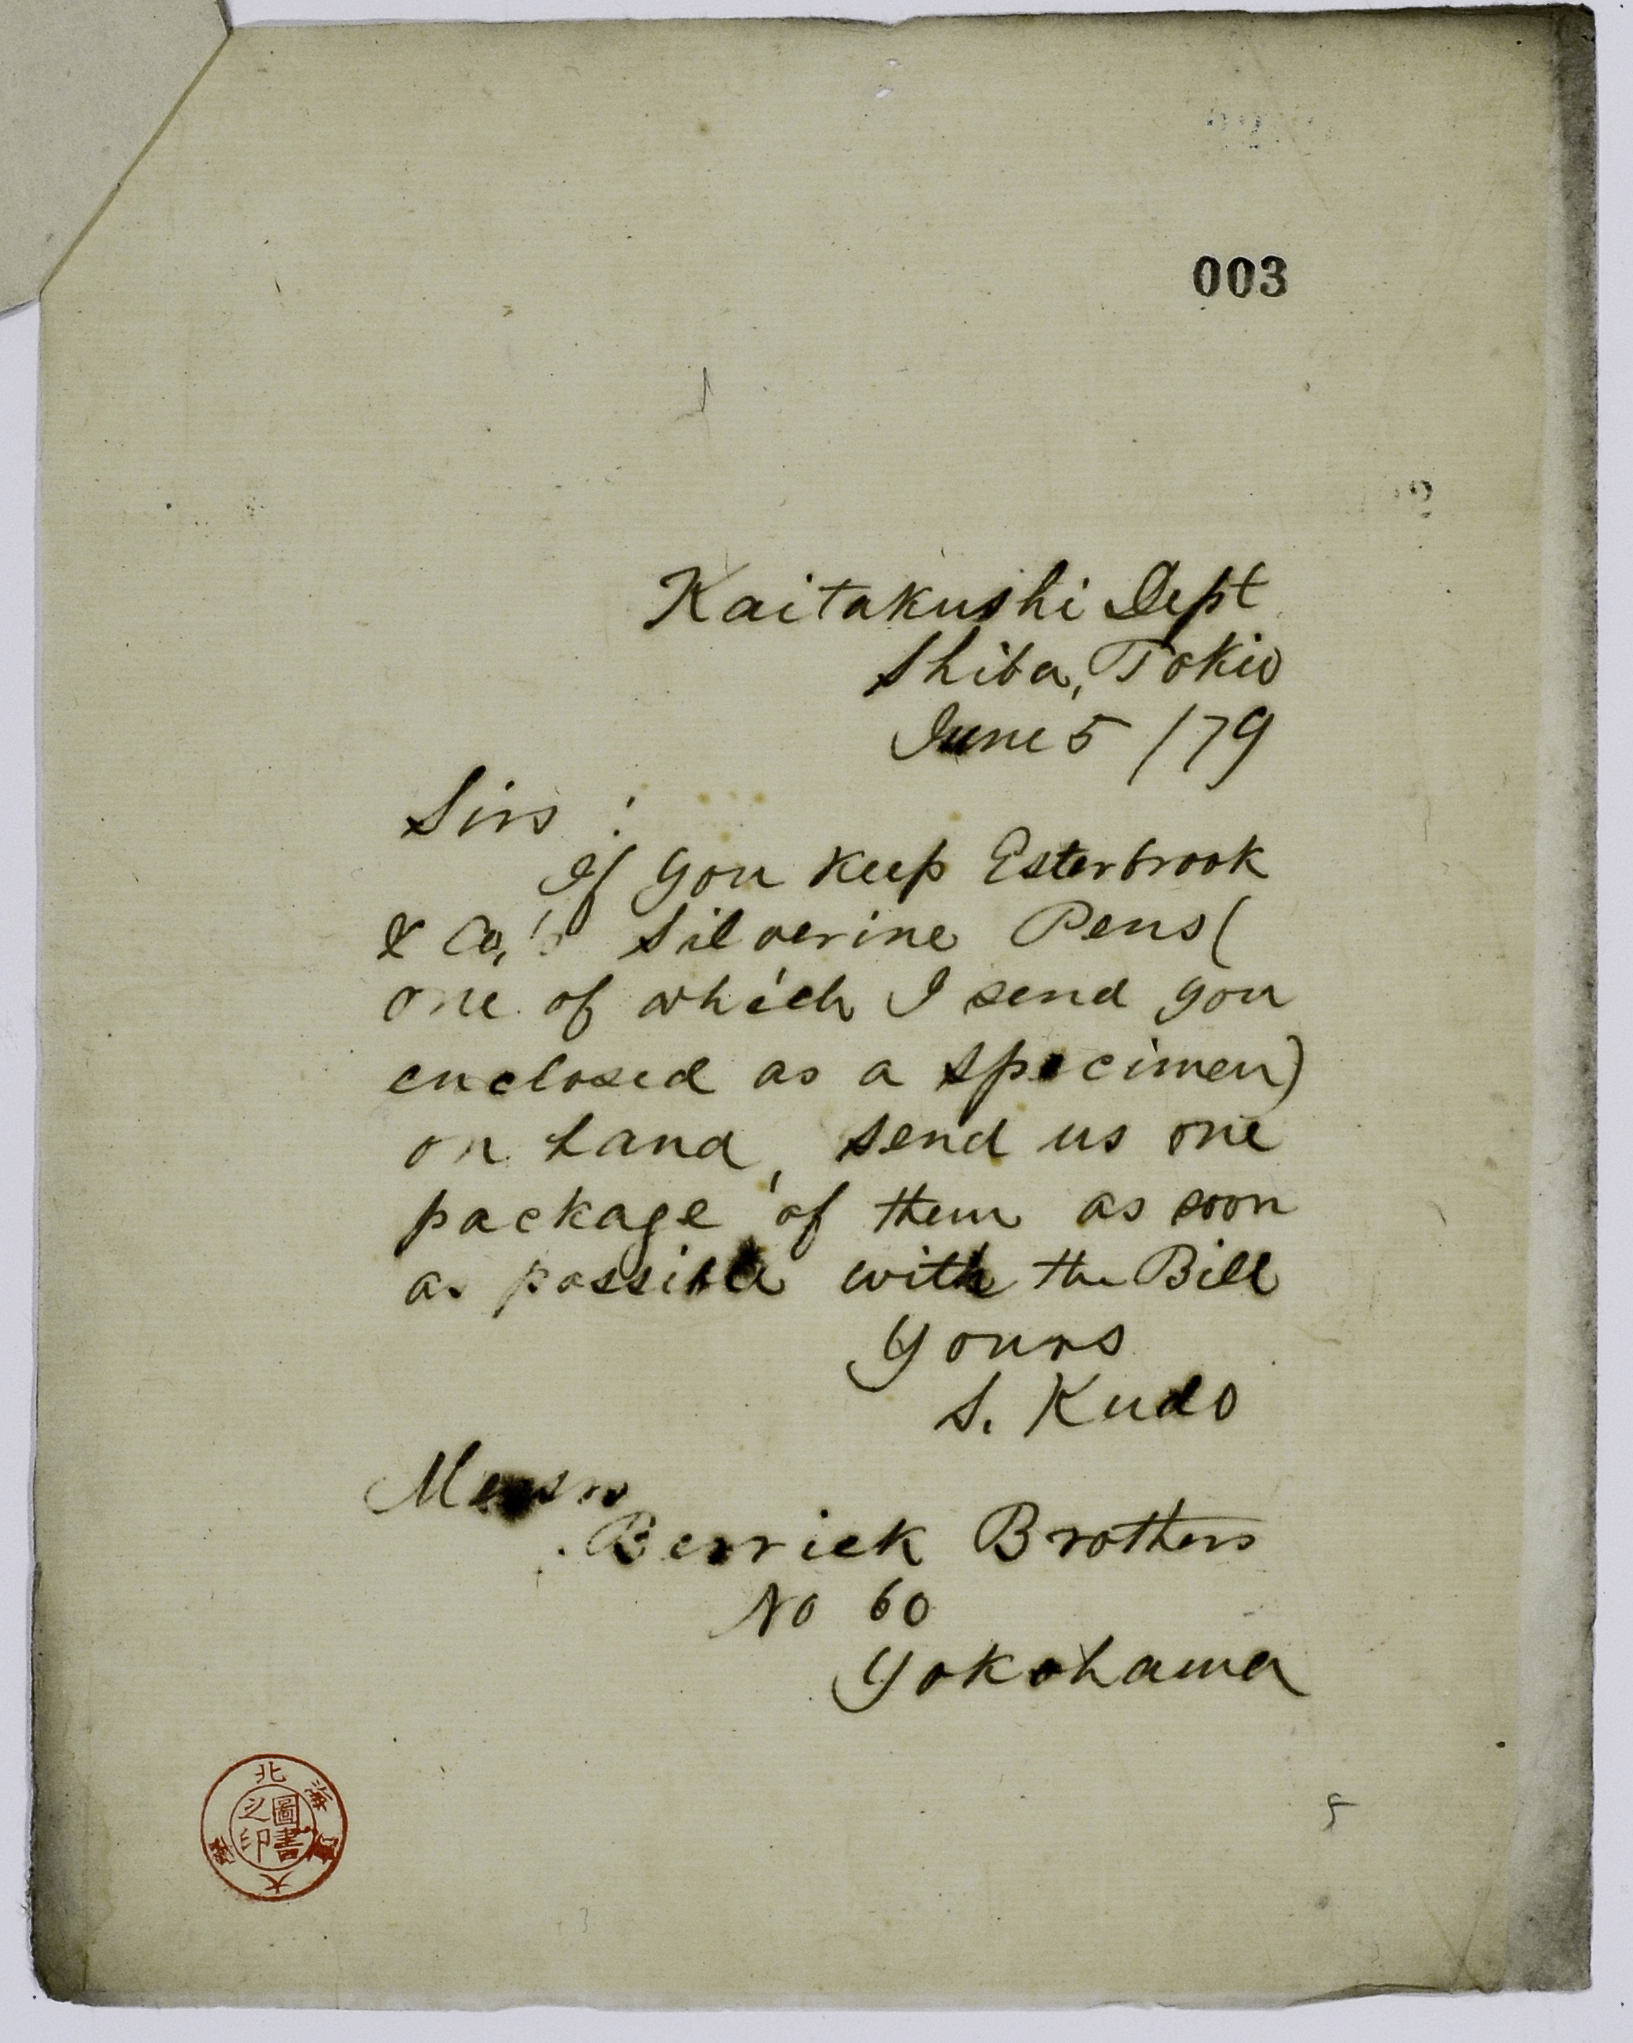 003
Kaitakushi Dept
Shiba, Tokio
June 5 /79
Sirs :
If you keep Esterbrook
& Co,'s Silverine Pens (
one of which I send you
enclosed as a specimen)
on hand, send us one
package of them as soon
as possible with the Bill
Yours
S. Kudo
Messrs
Berrick Brothers
No 60
Yokohama
北海道大學
圖書之印
5